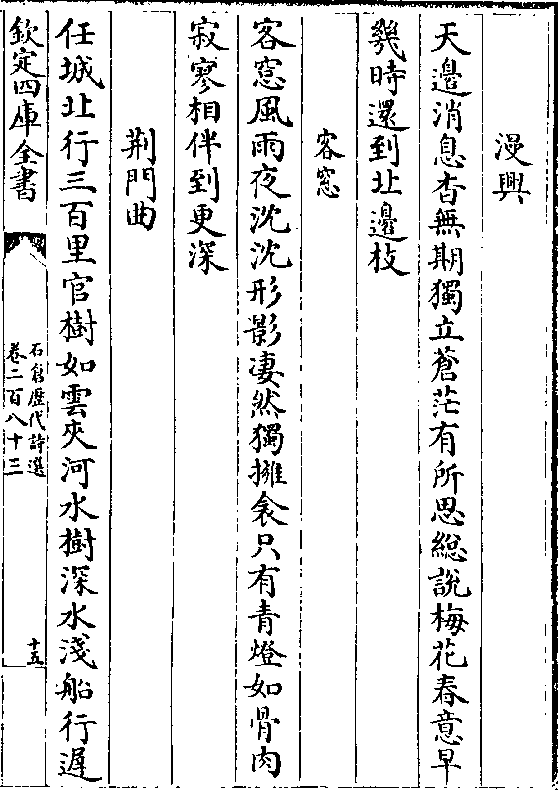 漫興
天邊消息杳無期獨立蒼茫有所思總說梅花春意早
幾時還到北邊枝
客窓
客窓風雨夜沈沈形影凄然獨擁衾只有青燈如骨肉
寂寥相伴到更深
荆門曲
任城北行三百里官樹如雲夾河水樹深水淺船行遲
欽定四庫全書
石倉歷代詩選
卷二百八十三
十五